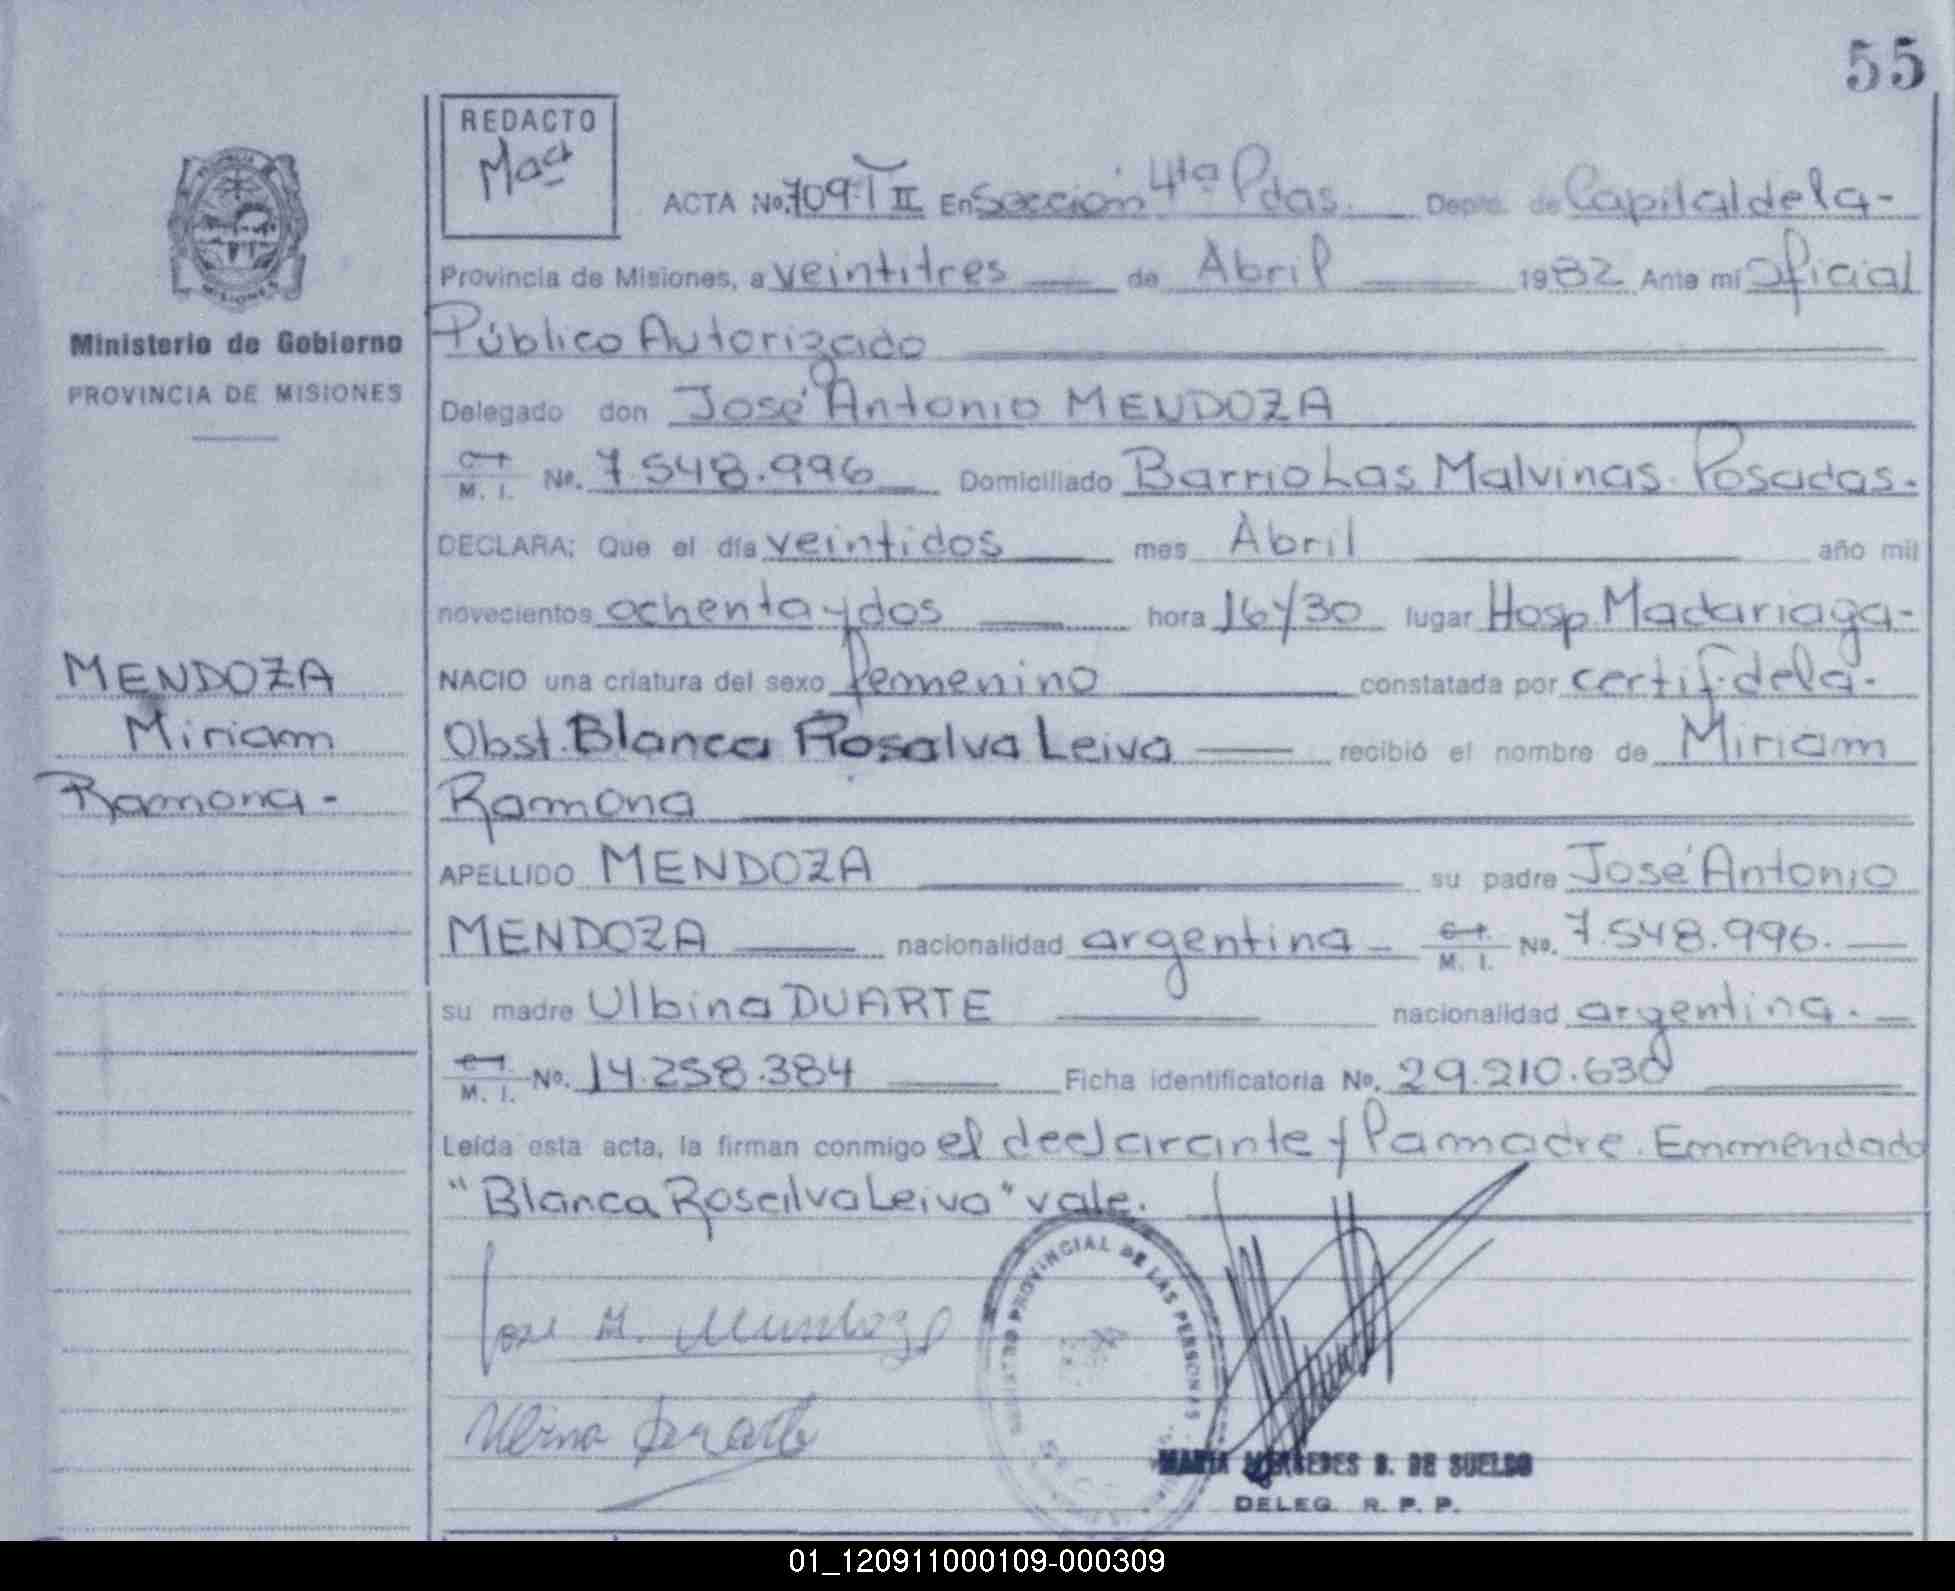 55
REDACTO
ACTA No. 709 T II En Sección 4ta Pdas. Depto. de Capital de la-
Provincia de Misiones, a veintitres de Abril 1982 Ante mi Oficial
Público Autorizado
Ministerio de Gobierno
PROVINCIA DE MISIONES
Delegado don José Antonio MENDOZA
M. I. No. 7.548.996 Domiciliado Barrio Las Malvinas. Posadas.
DECLARA; Que el día veintidos mes Abril año mil
novecientos ochenta y dos hora 16y30 lugar Hosp. Madariaga-
NACIO una criatura del sexo femenino constatada por certif. de la.
Obst. Blanca Rosalva Leiva recibió el nombre de Miriam
Ramona
MENDOZA
Miriam
Ramona-
APELLIDO MENDOZA su padre José Antonio
MENDOZA nacionalidad argentina- M. I. No. 7.548.996.
su madre Ulbina DUARTE nacionalidad argentina.
M. I. No. 14.258.384 Ficha identificatoria No. 29.210.630
Leída esta acta, la firman conmigo el declarante y la madre. Emmendado
"Blanca Rosalva Leiva" vale.
Jose A. Mendoza
PROVINCIAL DE LAS PERSONAS
MARIA MERCEDES B. DE SUELDO
DELEG. R. P. P.
01_120911000109-000309